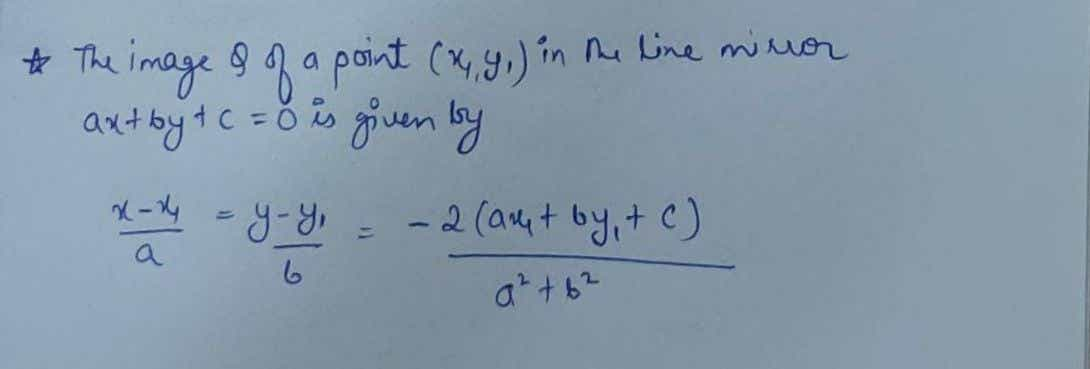 ☆ The image Q of a point (x₁, y₁) in the line mirror
ax + by + c = 0 is given by
(x - x₁)/a = (y - y₁)/b = -2(ax₁ + by₁ + c)/(a² + b²)